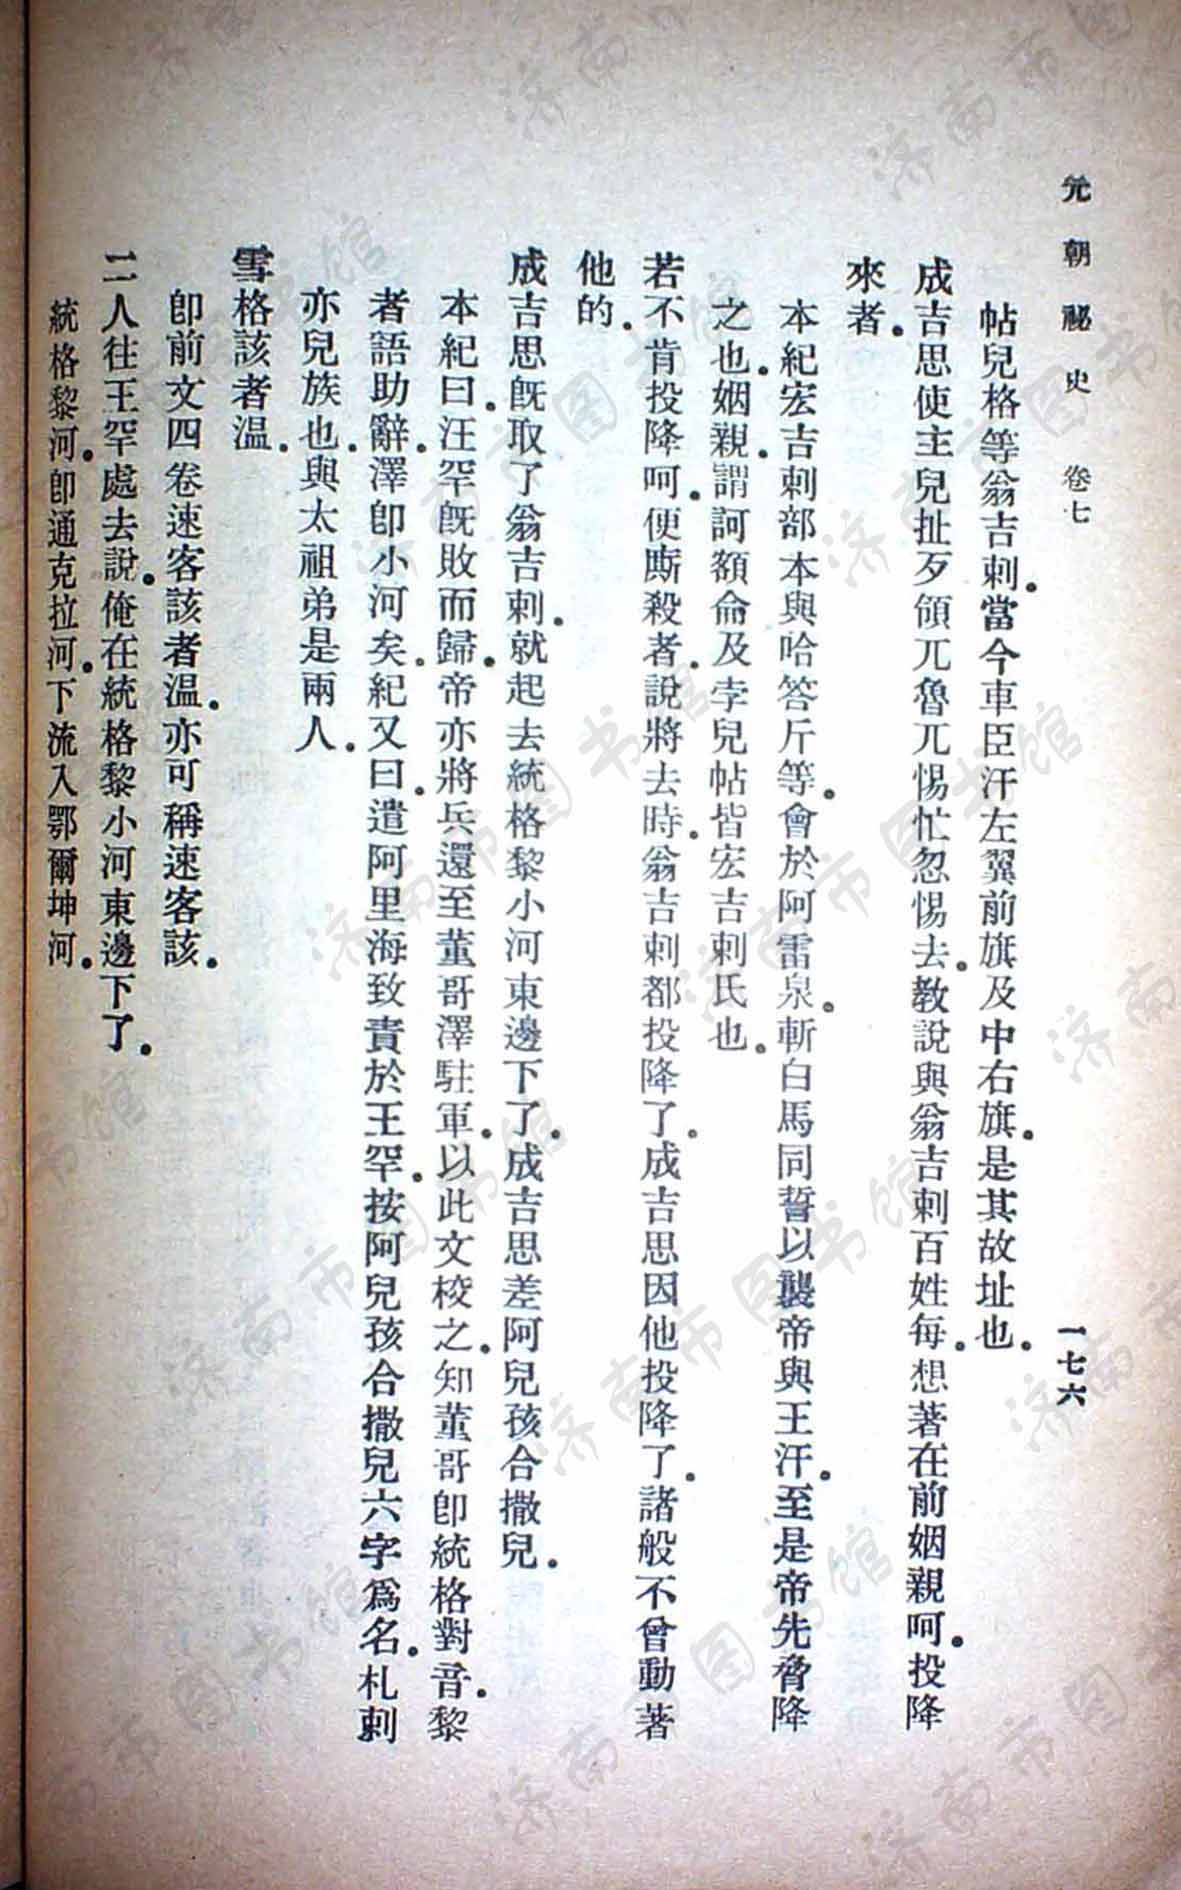 元朝祕史 卷七 一七六
帖兒格等翁吉剌。當今車臣汗左翼前旗及中右旗。是其故址也。
成吉思使主兒扯歹領兀魯兀惕忙忽惕去。教說與翁吉剌百姓每。想著在前姻親呵。投降
來者。
本紀宏吉剌部本與哈答斤等。會於阿雷泉。斬白馬同誓以襲帝與王汗。至是帝先脅降
之也。姻親。謂訶額侖及孛兒帖皆宏吉剌氏也。
若不肯投降呵。便廝殺者。說將去時。翁吉剌都投降了。成吉思因他投降了。諸般不曾動著
他的。
成吉思旣取了翁吉剌。就起去統格黎小河東邊下了。成吉思差阿兒孩合撒兒。
本紀曰。汪罕旣敗而歸。帝亦將兵還至董哥澤駐軍。以此文校之。知董哥卽統格對音。黎
者語助辭。澤卽小河矣。紀又曰。遣阿里海致責於王罕。按阿兒孩合撒兒六字爲名。札剌
亦兒族也。與太祖弟是兩人。
雪格該者溫。
卽前文四卷速客該者溫。亦可稱速客該。
二人往王罕處去說。俺在統格黎小河東邊下了。
統格黎河。卽通克拉河。下流入鄂爾坤河。
济南市图书馆